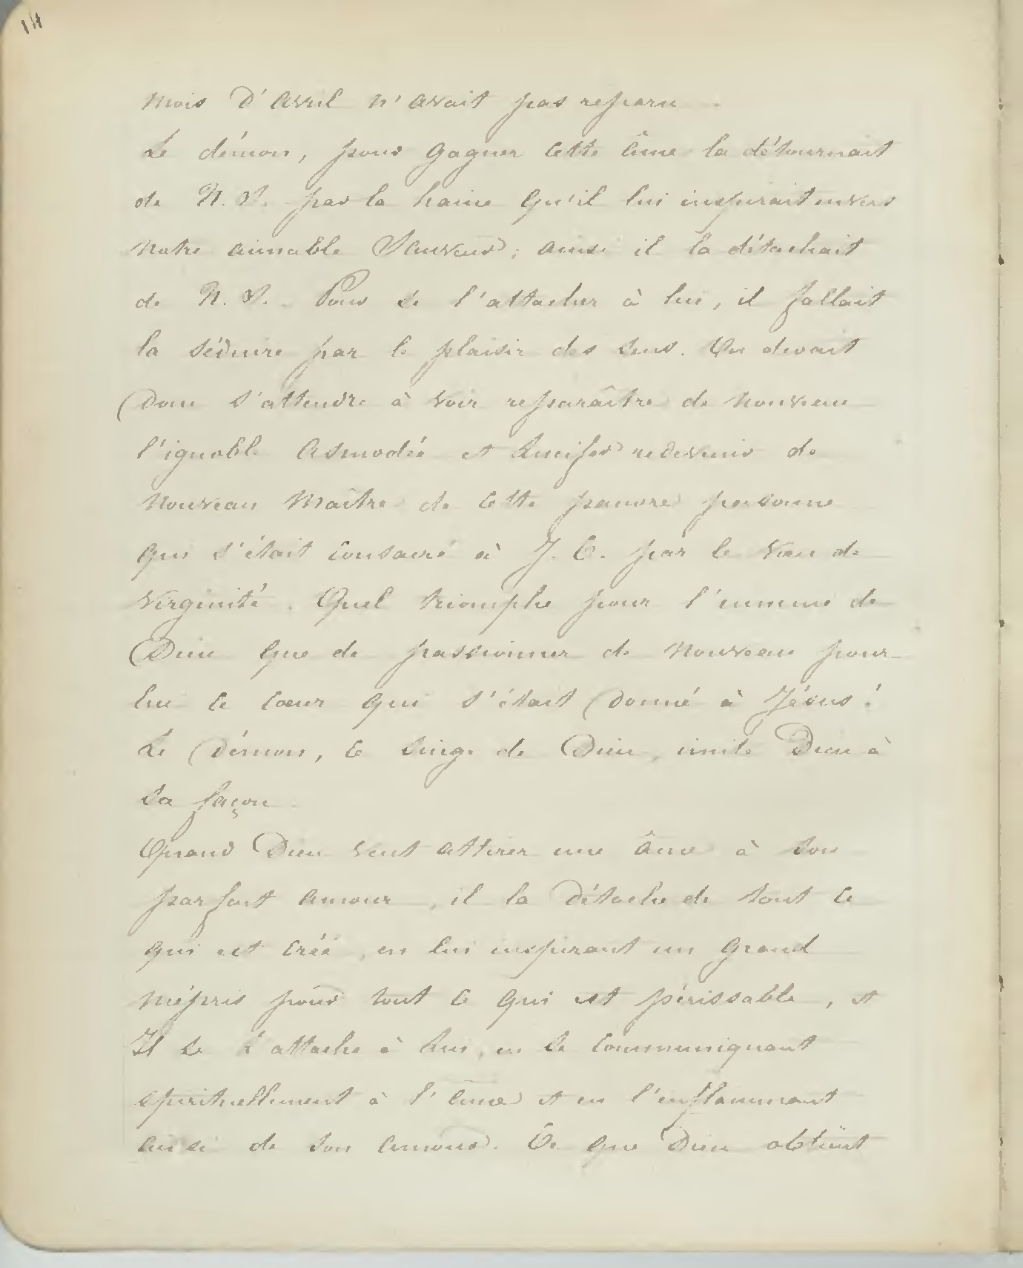 14
mois d'avril n'avait pas reparu ...
Le démon, pour gagner cette âme la détournait
de N. S. par la haine qu'il lui inspirait envers
notre aimable Sauveur ; ainsi il la détachait
de N. S. _ Pour se l'attacher à lui, il fallait
la séduire par le plaisir des sens. On devait
donc s'attendre à voir reparaître de nouveau
l'ignoble Asmodée et Lucifer redevenir de
nouveau maître de cette pauvre personne
qui s'était consacré à J. C. par le vœu de
virginité. Quel triomphe pour l'ennemi de
Dieu que de passionner de nouveau pour
lui le cœur qui s'était donné à Jésus !
Le démon, ce singe de Dieu, imite Dieu à
sa façon.
Quand Dieu veut attirer une âme à son
parfait amour, il la détache de tout ce
qui est créé, en lui inspirant un grand
mépris pour tout ce qui est périssable, et
Il se l'attache à Lui, en se communiquant
spirituellement à l'âme et en l'enflammant
ainsi de son amour. Ce que Dieu obtient